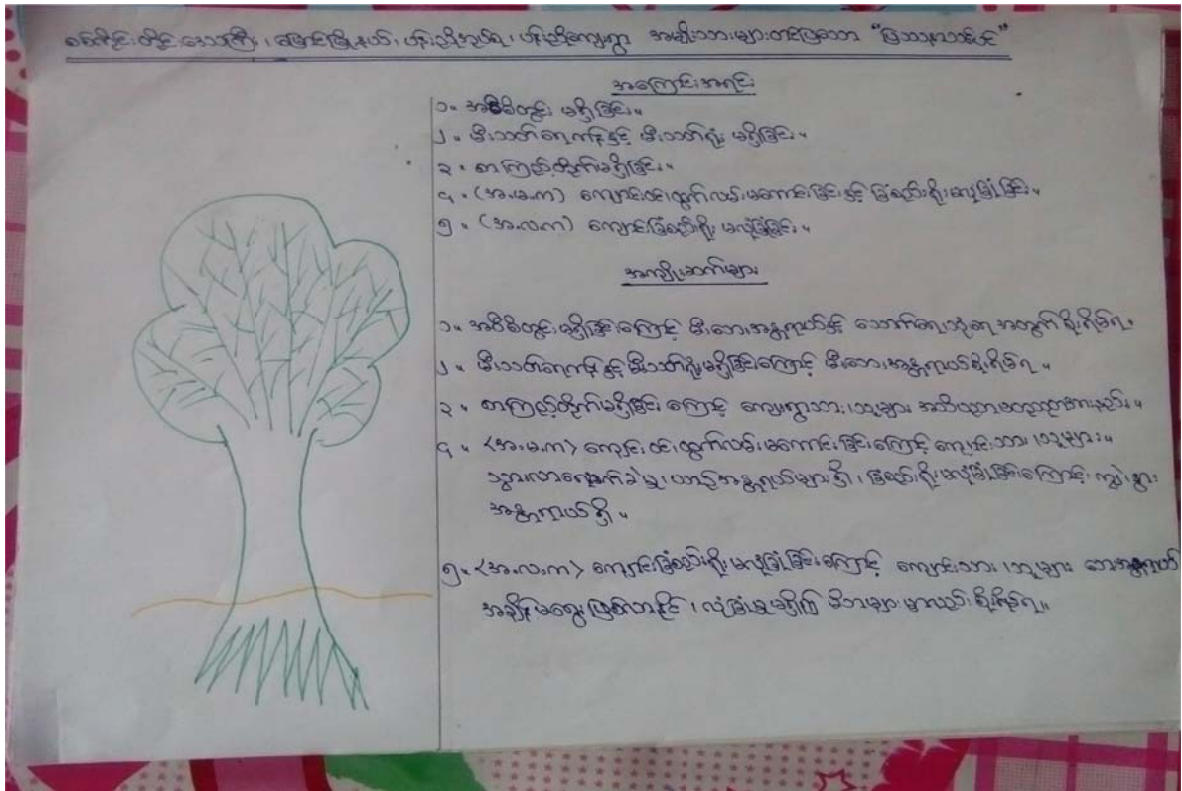 စစ်ကိုင်းတိုင်းဒေသကြီး၊ မြောင်မြို့နယ်၊ ပန်းညိုအုပ်စု၊ ပန်းညိုကျေးရွာ အမျိုးသားများတင်ပြသော "ပြဿနာသစ်ပင်"
အကြောင်းအရင်း
၁။ အဝီစိတွင်း မရှိခြင်း။
၂။ မီးသတ်ရေကန်နှင့် မီးသတ်ရုံး မရှိခြင်း။
၃။ စာကြည့်တိုက်မရှိခြင်း။
၄။ (အ.မ.က) ကျောင်းဝင်းထွက်လမ်းမကောင်းခြင်းနှင့် ခြံစည်းရိုးမလုံခြုံခြင်း။
၅။ (အ.လ.က) ကျောင်းခြံစည်းရိုး မလုံခြုံခြင်း။
အကျိုးဆက်များ
၁။ အဝီစိတွင်းမရှိခြင်းကြောင့် မီးဘေးအန္တရာယ်နှင့် သောက်ရေသုံးရေ အတွက် စိုးရိမ်ရ။
၂။ မီးသတ်ရေကန်နှင့် မီးသတ်ရုံးမရှိခြင်းကြောင့် မီးဘေးအန္တရာယ်စိုးရိမ်ရ။
၃။ စာကြည့်တိုက်မရှိခြင်း ကြောင့် ကျေးရွာသား၊သူများ အသိပညာဗဟုသုတအားနည်း။
၄။ <အ.မ.က> ကျောင်းဝင်းထွက်လမ်းမကောင်းခြင်းကြောင့် ကျောင်းသား၊သူများ။
သွားလာရေးခက်ခဲမှု၊ ယာဉ်အန္တရာယ်များရှိ၊ ခြံစည်းရိုးမလုံခြုံခြင်းကြောင့် ကျွဲ၊နွား
အန္တရာယ်ရှိ။
၅။ <အ.လ.က> ကျောင်းခြံစည်းရိုးမလုံခြုံခြင်းကြောင့် ကျောင်းသား၊သူများ ဘေးအန္တရာယ်
အချိန်မရွေးဖြစ်လာနိုင်၊ လုံခြုံမှုမရှိ၍ မိဘများမှာလည်းစိုးရိမ်ရ။